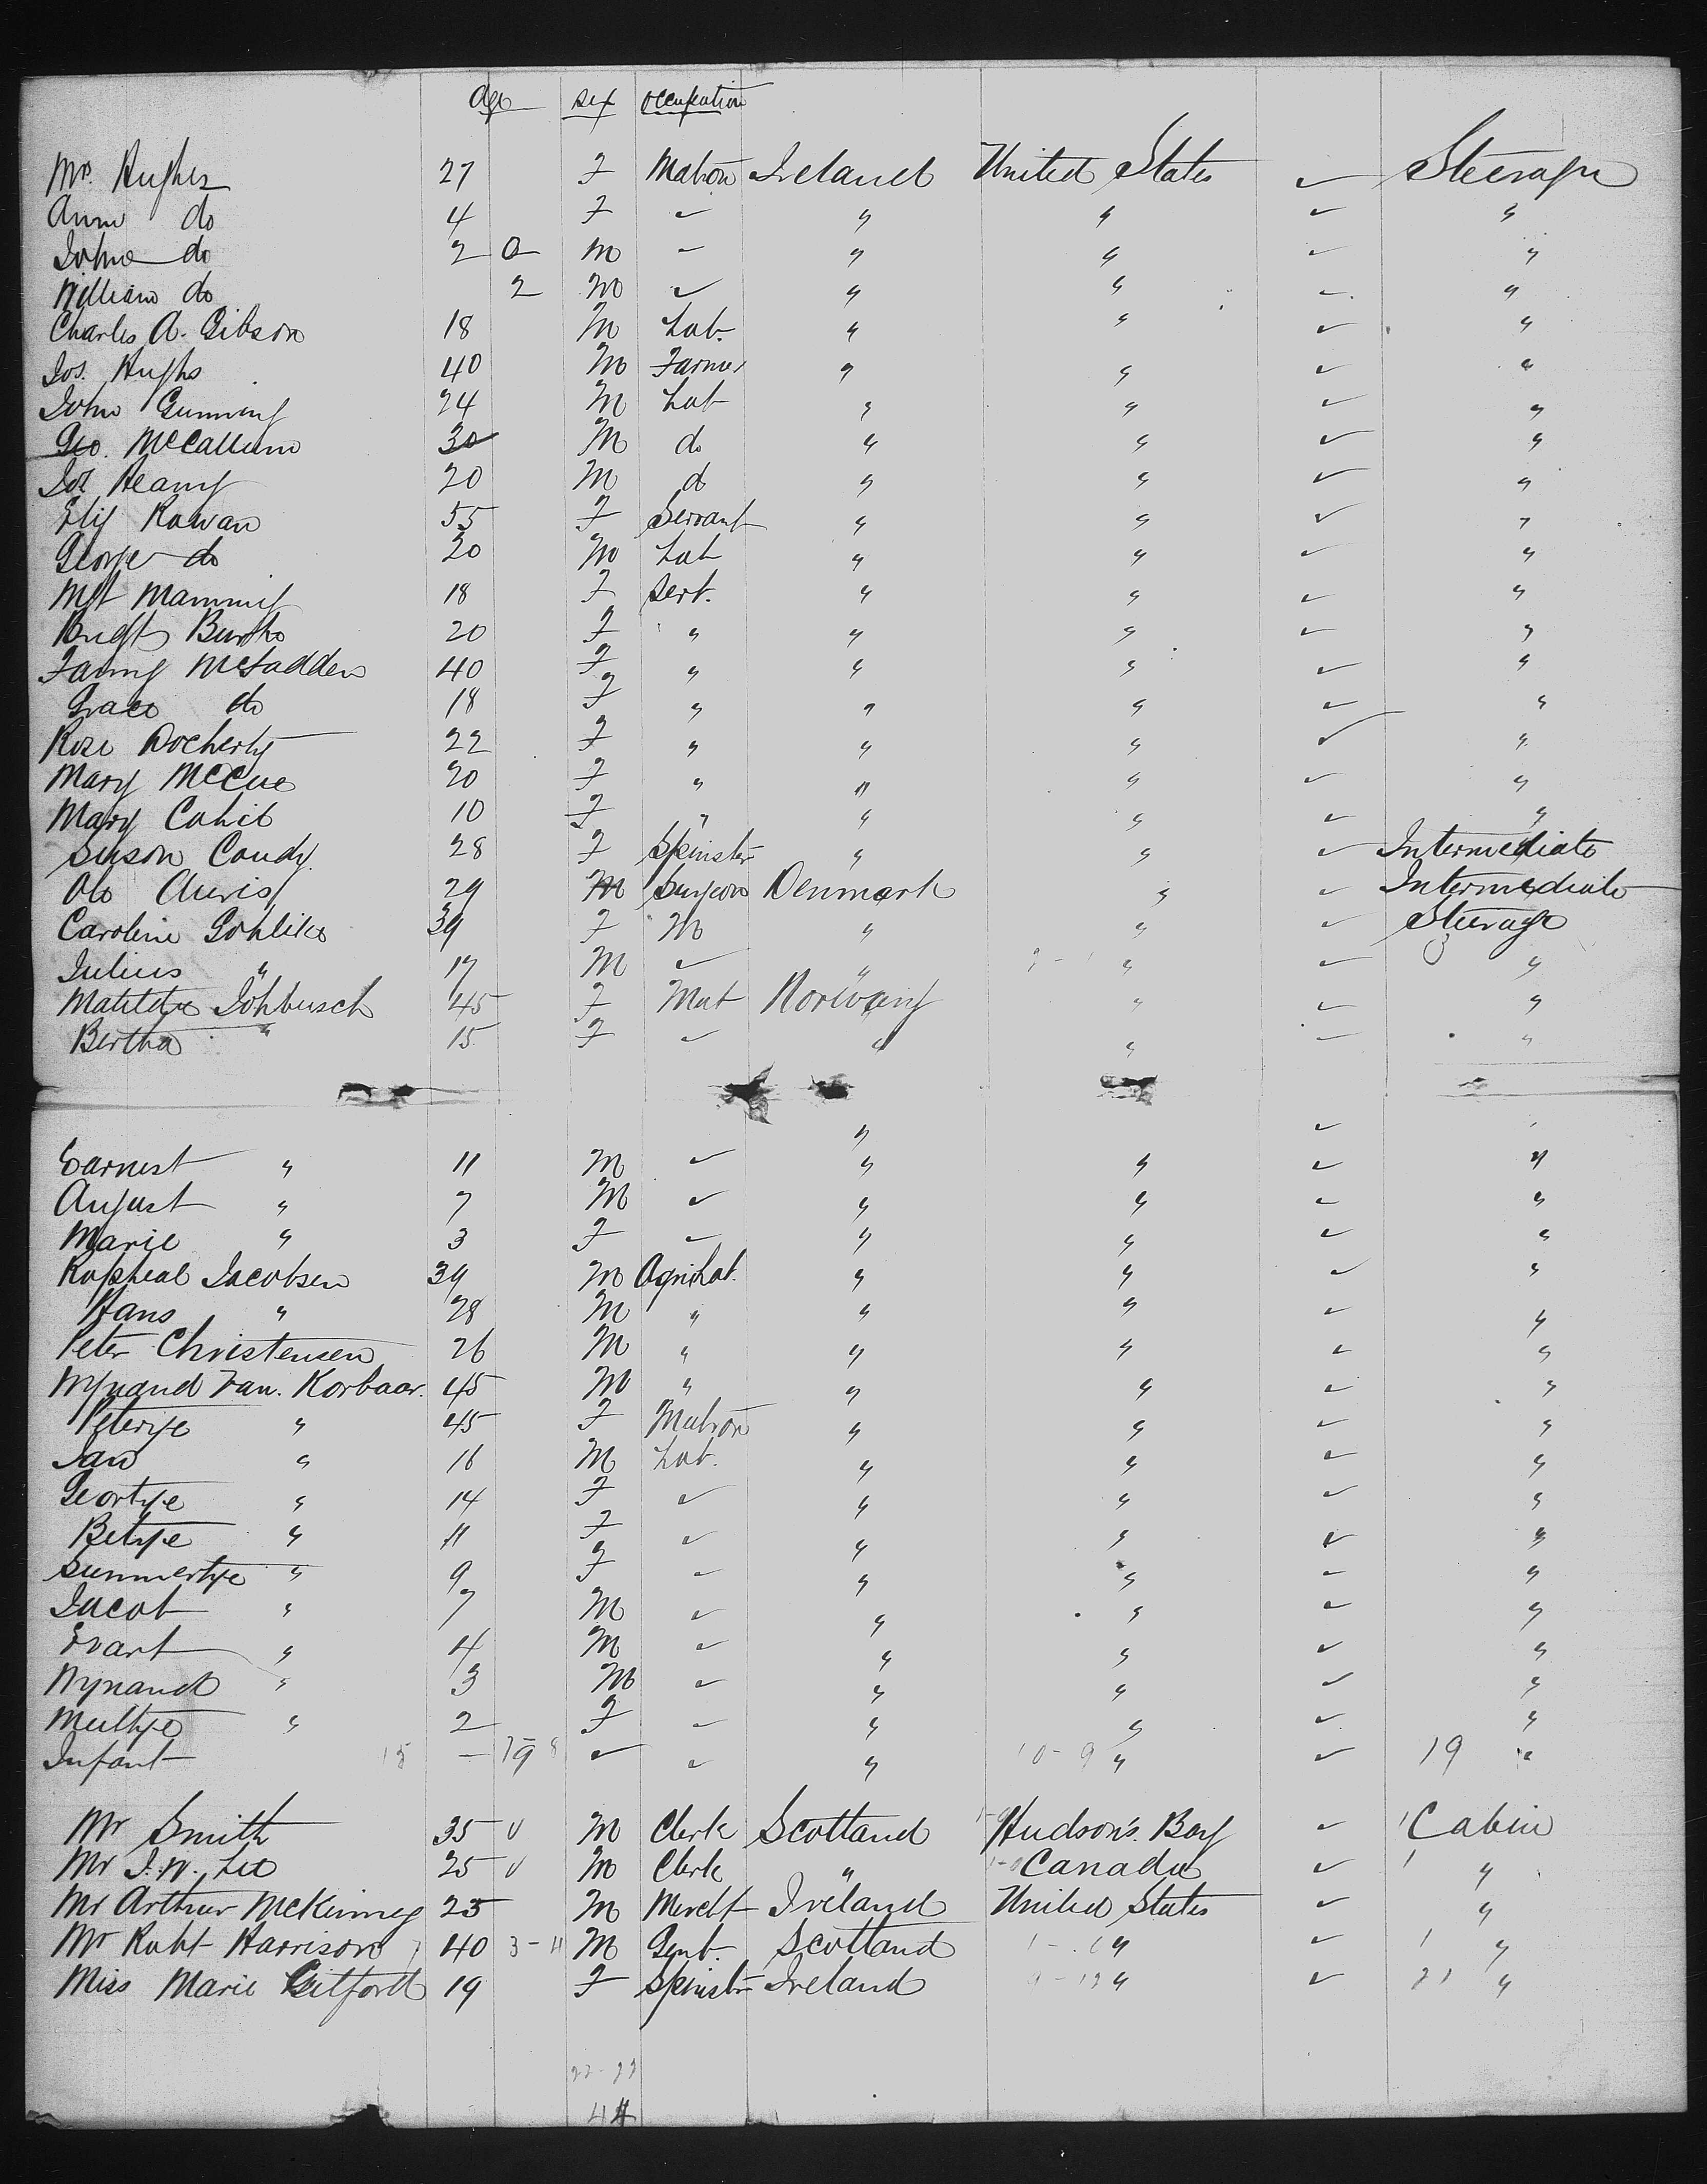 Age sex occupation
Mrs. Hughes 27 F Matron Ireland United States ✓ Steerage
Anne do 4 F ✓ " " ✓ "
John do 2 0 M - " " ✓ "
William do 2 M ✓ " " ✓ "
Charles A. Gibson 18 M Lab. " " ✓ "
Jos. Hughs 40 M Farmer " " ✓ "
John Gunning 24 M Lab " " ✓ "
Geo. McCallum 30 M do " " ✓ "
Jos Heany 20 M do " " ✓ "
Eliz Rowan 55 F Servant " " ✓ "
George do 20 M Lab " " ✓ "
Mgt Manning 18 F Sert. " " ✓ "
Bridgt Burke 20 F " " " ✓ "
Fanny McFadden 40 F " " " ✓ "
Grace do 18 F " " " ✓ "
Rose Docherty 22 F " " " ✓ "
Mary McCue 20 F " " " ✓ "
Mary Cahil 10 F " " " ✓ "
Suson Candy 28 F Spinster " " ✓ Intermediate
Olo 29 M Surgeon Denmark " ✓ Intermediate
Caroline Gohlike 39 F M " " ✓ Steerage
Julius " 17 M ✓ " " ✓ "
Matildye Johbusch 45 F Mat Norway " ✓ "
Bertha " 15 F ✓ " " ✓ "
" ✓
Earnest " 11 M ✓ " " ✓ "
August " 7 M ✓ " " ✓ "
Marie " 3 F ✓ " " ✓ "
Rapheal Jacobsen 39 M Agri Lab. " " ✓ "
Hans " 28 M " " " ✓ "
Peter Christensen 26 M " " " ✓ "
Wynand Van. Korbaar. 45 M " " " ✓ "
Peterije " 45 F Matron " " ✓ "
Jan " 16 M Lab. " " ✓ "
Geortye " 14 F ✓ " " ✓ "
Betye " 11 F ✓ " " ✓ "
Summertye " 9 F ✓ " " ✓ "
Jacob " 7 M ✓ " " ✓ "
Evart " 4 M ✓ " " ✓ "
Wynand " 3 M ✓ " " ✓ "
Meltye " 2 F ✓ " " ✓ "
Infant 15 - 9 ✓ ✓ " 10-9 " ✓ 19 "
Mr Smith 35 ✓ M Clerk Scotland Hudson's. Bay ✓ 1 Cabin
Mr J. W. Lee 25 ✓ M Clerk " Canada ✓ 1 "
Mr Arthur McKinney 25 M Mercht Ireland United States ✓ "
Mr Robt Harrison 40 3-11 M Gent. Scotland " ✓ 1 "
Miss Marie Gilford 19 F Spinstr Ireland " ✓ 21 "
44